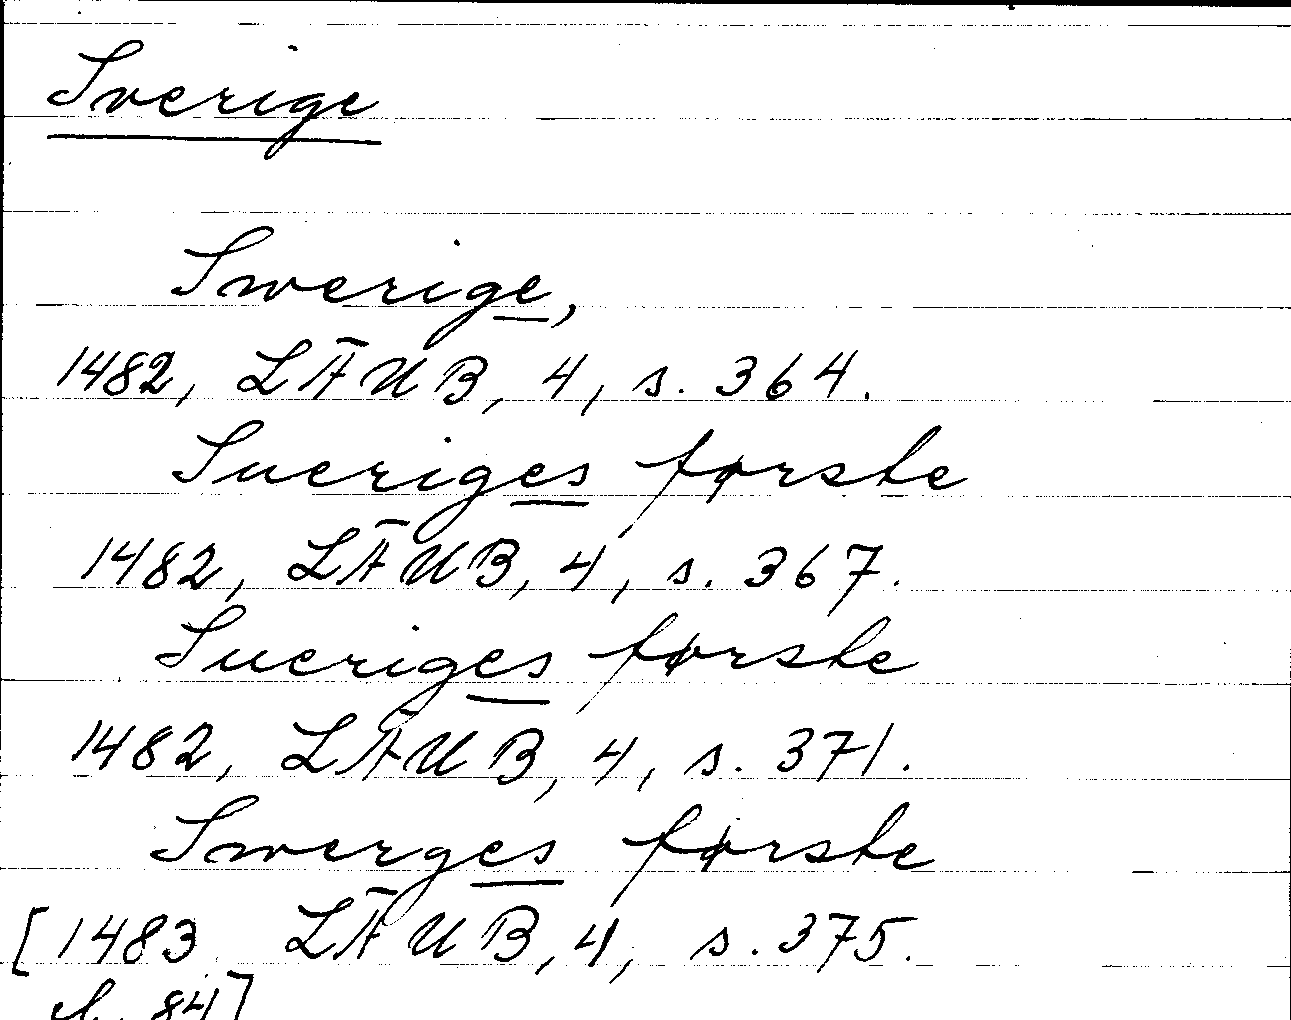 Sverige
Swerige,
1482, LÄUB, 4, s. 364.
Sueriges første
1482, LÄUB, 4, s. 367.
Sueriges første
1482, LÄUB, 4, s. 371.
Swerges første
[1483 LÄUB, 4, s. 375.
84]